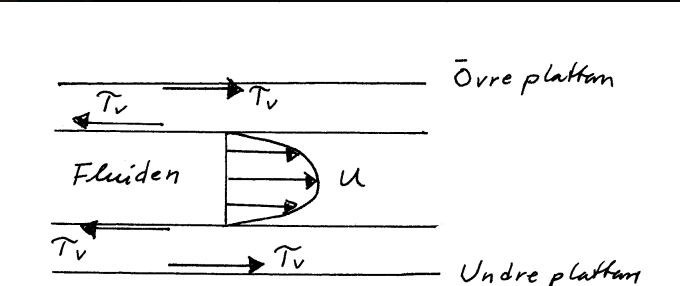 Övre plattan
τv
τv
Fluiden
u
τv
τv
Undre plattan